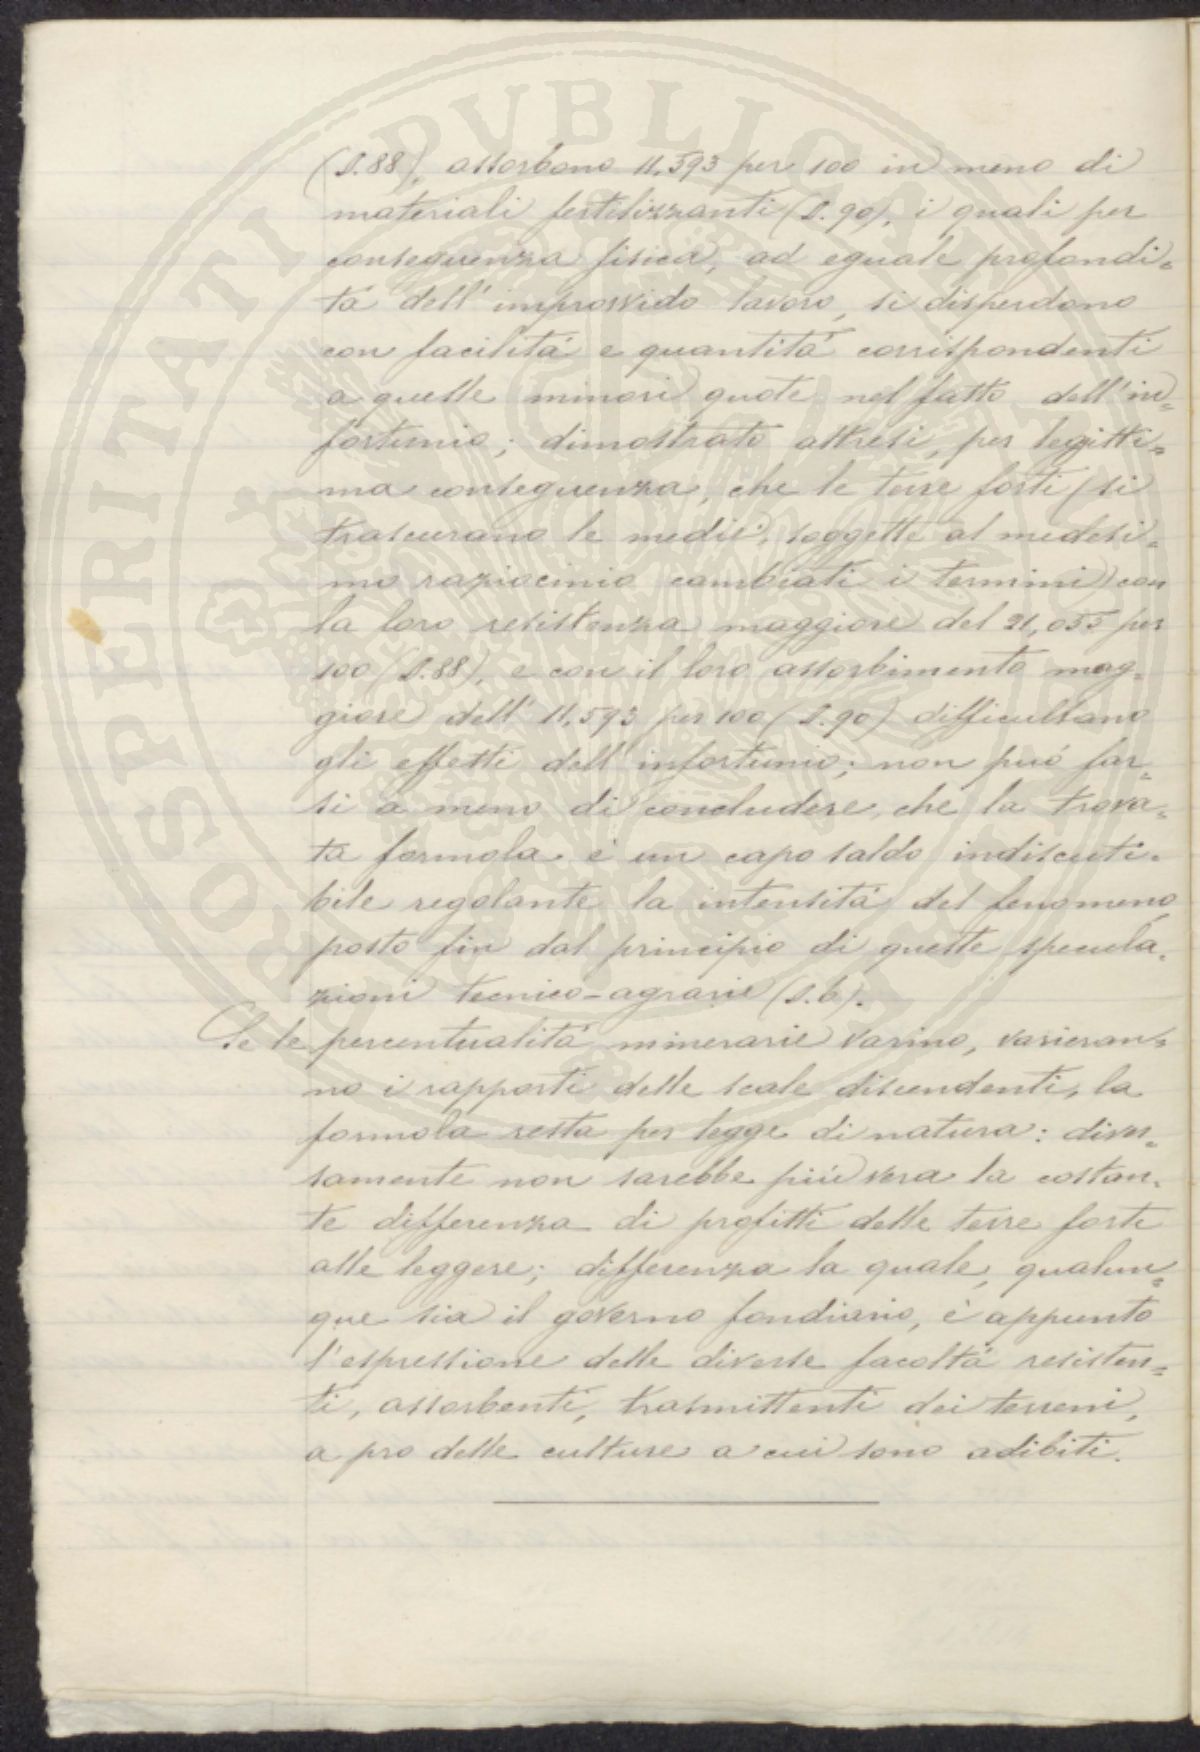 (§.88), assorbono 11.593 per 100 in meno di
materiali fertilizzanti (§.90), i quali per
conseguenza fisica, ad eguale profondi=
tá dell'improvvido lavoro, si disperdono
con facilitá e quantitá corrispondenti
a quelle minori quote nel fatto dell'in=
fortunio; dimostrato altresi, per legitti=
ma conseguenza, che le terre forti (si
trascurano le medie, soggette al medesi=
mo raziocinio cambiati i termini) con
la loro resistenza maggiore del 21,055 per
100 (§.88), e con il loro assorbimento mag=
giore dell'11.593 per 100 (§.90) difficultano
gli effetti dell'infortunio; non puó far=
si a meno di concludere, che la trova=
ta formola é un capo saldo indiscuti=
bile regolante la intensitá del fenomeno
posto fin dal principio di queste specula=
zioni tecnico-agrarie (§.6).
Se le percentualitá minerarie varino, varieran=
no i rapporti delle scale discendenti, la
formola resta per legge di natura: diver=
samente non sarebbe piú vera la costan=
te differenza di profitti delle terre forti
alle leggere; differenza la quale, qualun=
que sia il governo fondiario, é appunto
l'espressione delle diverse facoltá resisten=
ti, assorbenti, trasmittenti dei terreni,
a pro delle culture a cui sono adibiti.
PROSPERITATI PVBLICAE